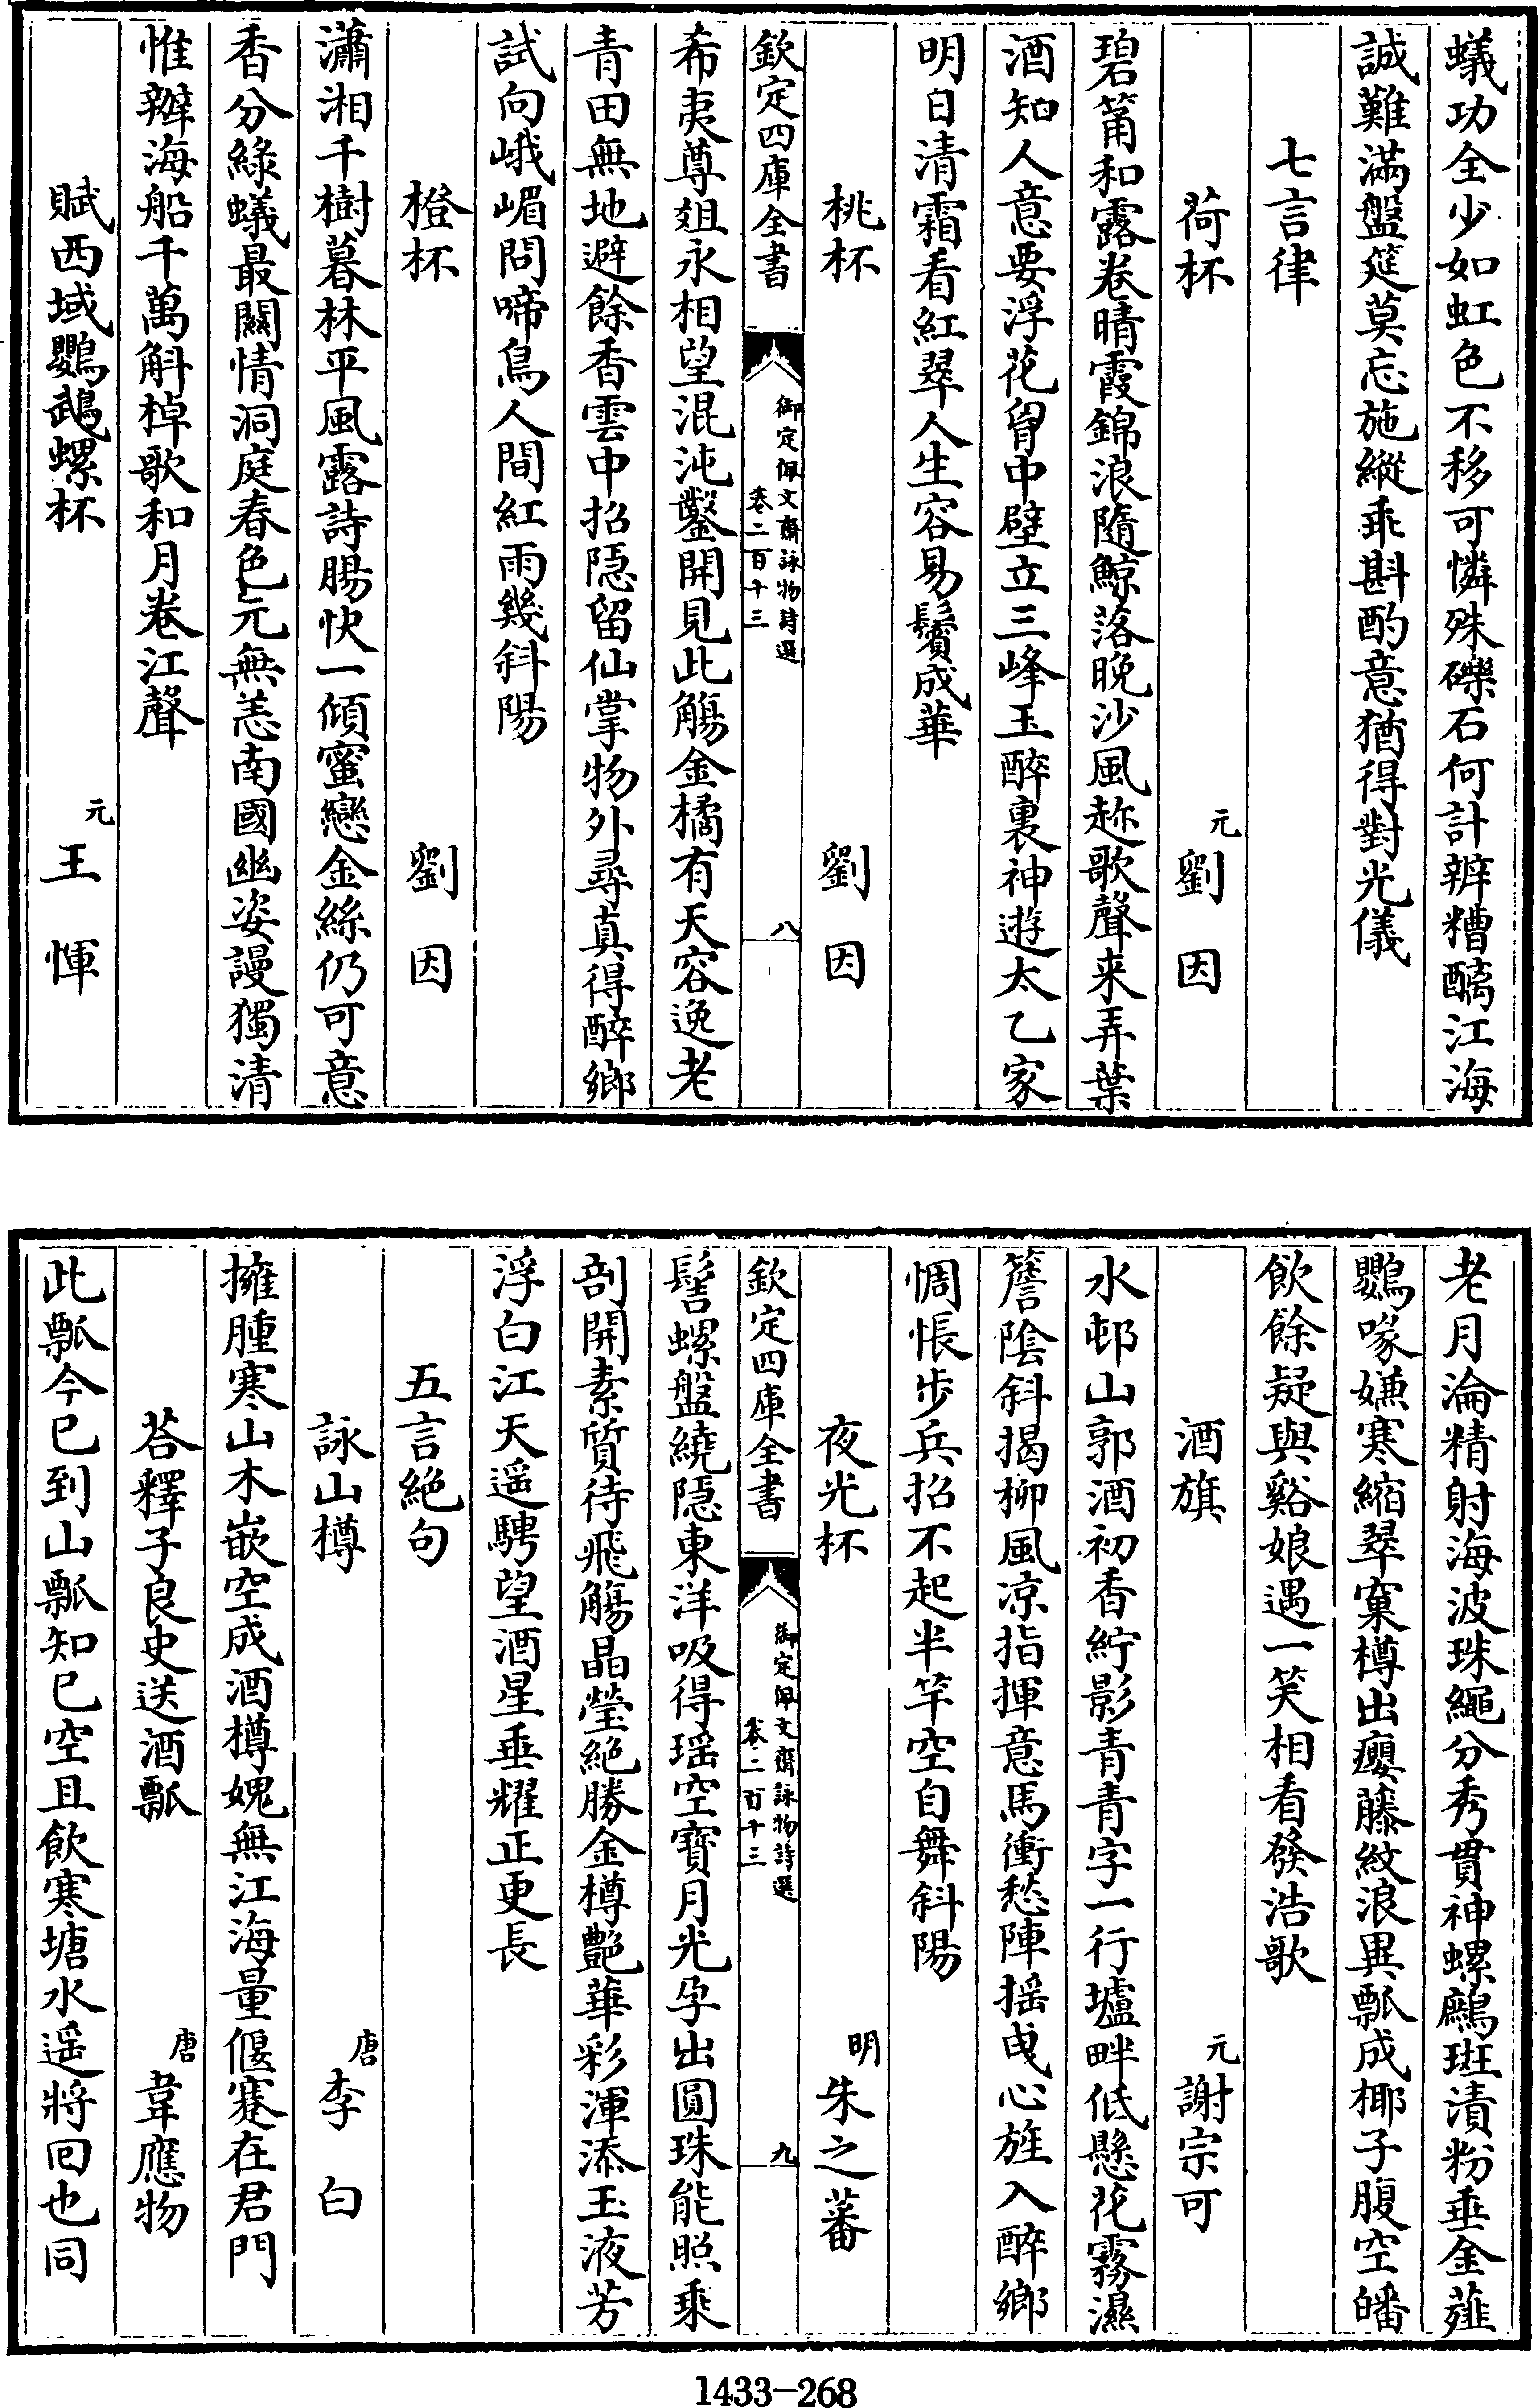 蟻功全少如虹色不移可憐殊礫石何計辨糟醨江海
誠難滿盤筵莫忘施縱乖斟酌意猶得對光儀
七言律
荷杯 元劉因
碧筩和露卷晴霞錦浪隨鯨落晚沙風趂歌聲来弄葉
酒知人意要浮花胷中壁立三峰玉醉裏神遊太乙家
明日清霜看紅翠人生容易鬢成華
桃杯 劉因
希夷尊爼永相望混沌鑿開見此觴金橘有天容逸老
青田無地避餘香雲中招隠留仙掌物外尋真得醉鄉
試向峨嵋問啼鳥人間紅雨幾斜陽
橙杯 劉因
瀟湘千樹暮林平風露詩腸快一傾蜜戀金絲仍可意
香分綠蟻最闗情洞庭春色元無恙南國幽姿謾獨清
惟辦海船千萬斛棹歌和月卷江聲
賦西域鸚鵡螺杯 元王惲
欽定四庫全書
御定佩文齋詠物詩選
卷二百十三
八
老月淪精射海波珠繩分秀貫神螺鷓斑漬粉垂金薤
鸚喙嫌寒縮翠窠樽出癭藤紋浪異瓢成椰子腹空皤
飲餘疑與谿娘遇一笑相看發浩歌
酒旗 元謝宗可
水邨山郭酒初香紵影青青字一行壚畔低懸花霧濕
簷陰斜揭柳風凉指揮意馬衝愁陣揺曵心旌入醉鄉
惆悵步兵招不起半竿空自舞斜陽
夜光杯 明朱之蕃
髻螺盤繞隠東洋吸得瑶空寶月光孕出圓珠能照乘
剖開素質待飛觴晶瑩絶勝金樽艷華彩渾添玉液芳
浮白江天遥騁望酒星垂耀正更長
五言絶句
詠山樽 唐李白
擁腫寒山木嵌空成酒樽媿無江海量偃蹇在君門
荅釋子良史送酒瓢 唐韋應物
此瓢今已到山瓢知已空且飲寒塘水遥將回也同
欽定四庫全書
御定佩文齋詠物詩選
卷二百十三
九
1433-268